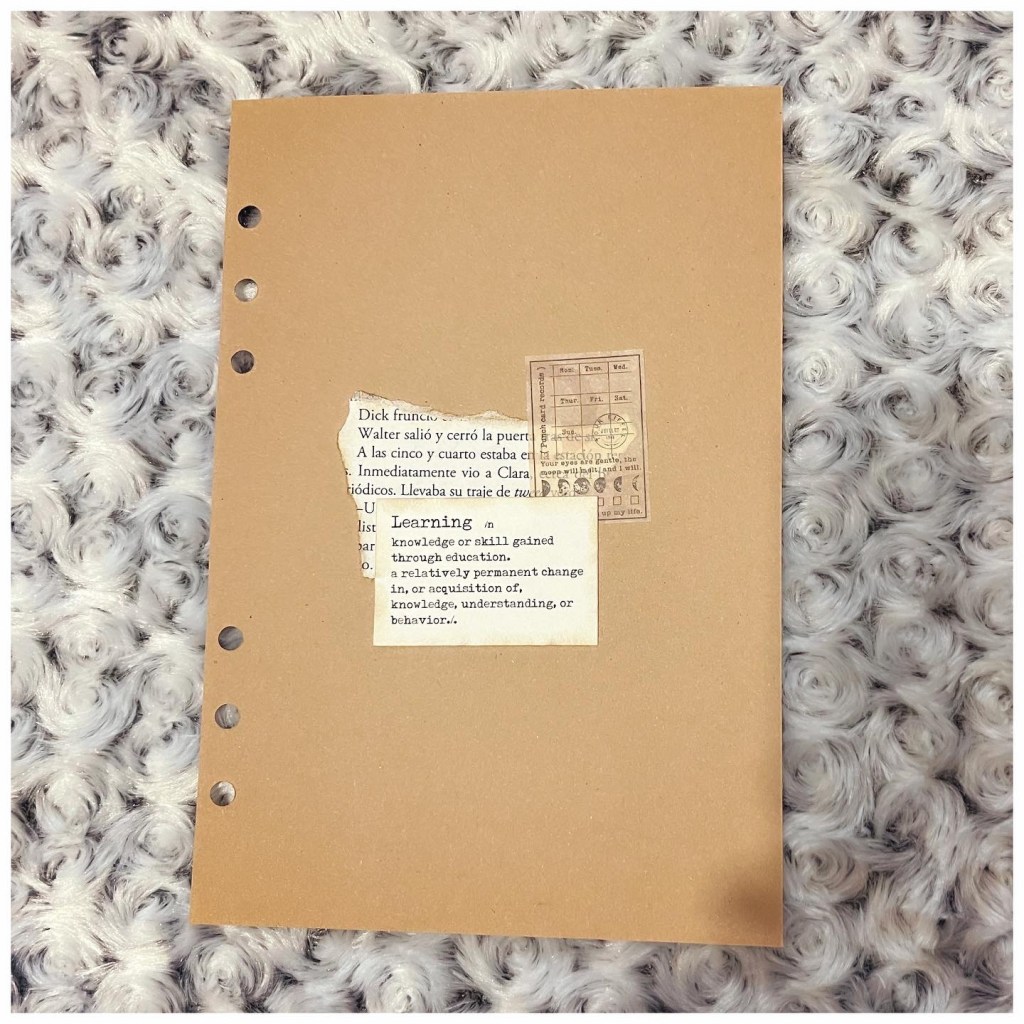 Dick frunció
Walter salió y cerró la puert
A las cinco y cuarto estaba en la estación
s. Inmediatamente vio a Clara.
iódicos. Llevaba su traje de twe
—U
list
par
o.
Punch card records )
Mon. Tues. Wed.
Thur. Fri. Sat.
Sun.
Your eyes are gentle, the
moon will melt, and I will.
up my life.
Learning /n
knowledge or skill gained
through education.
a relatively permanent change
in, or acquisition of,
knowledge, understanding, or
behavior./.